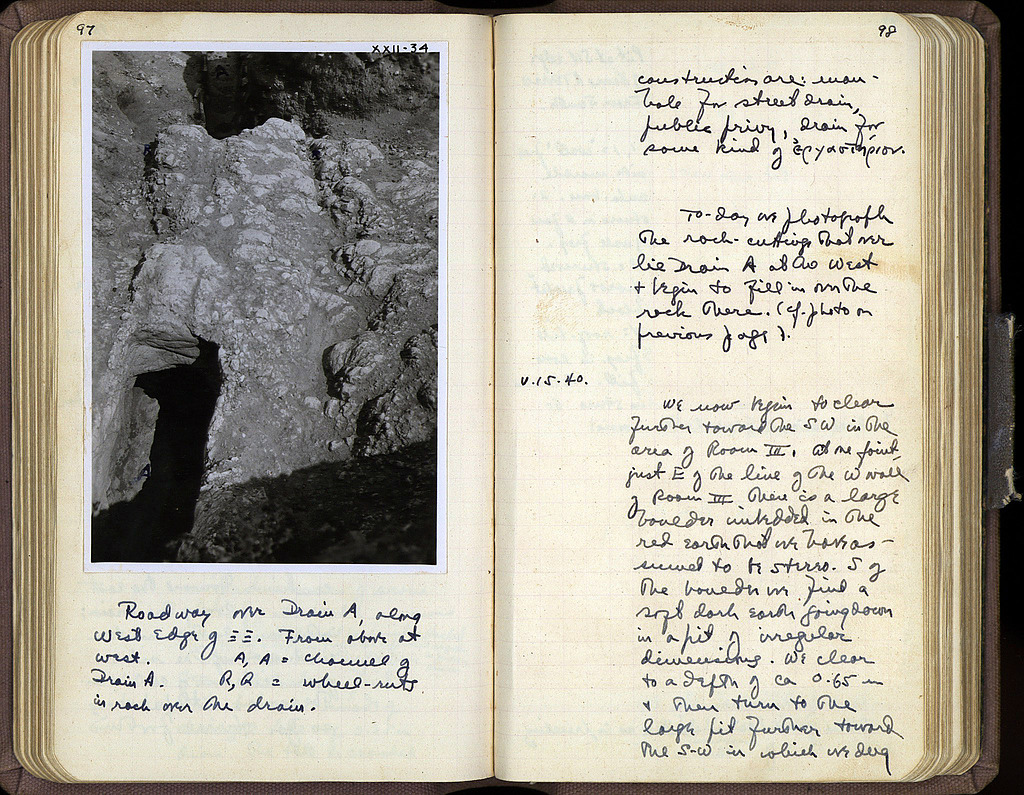 97
XXII-34
A
Roadway over Drain A, along
West Edge of ΞΞ. From above at
west. A, A = channel of
Drain A. R, R = wheel-ruts
in rock over the drain.
98
construction are: man-
hole for street drain,
public privy, drain for
some kind of ἐργαστήριον.
To-day we photograph
the rock-cuttings that over
lie Drain A at the West
+ begin to fill in on the
rock there. (cf. photo on
previous page).
V.15.40.
We now begin to clear
further toward the SW in the
area of Room III. At one point
just E of the line of the W wall
of Room III there is a large
boulder imbedded in the
red earth that we have as-
sumed to be stereo. S of
the boulder we find a
soft dark earth going down
in a pit of irregular
dimensions. We clear
to a depth of ca 0.65 m
+ then turn to the
large pit further toward
the S-W in which we dug